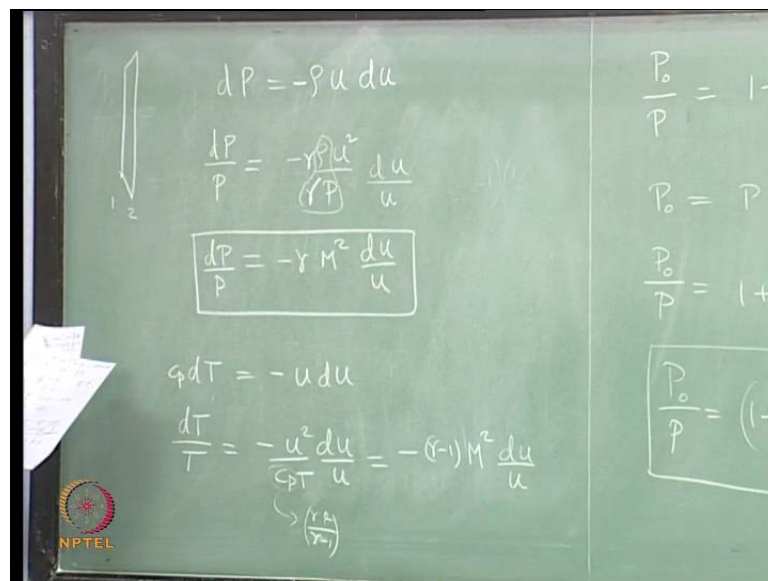 dP = -ρ u du
dP/P = -γρu²/(γP) du/u
dP/P = -γ M² du/u
1 2
cpdT = - u du
dT/T = - u²/CpT du/u = -(γ-1) M² du/u
(γR/γ-1)
P₀/P = 1-
P₀ = P
P₀/P = 1+
P₀/P = (1-
NPTEL